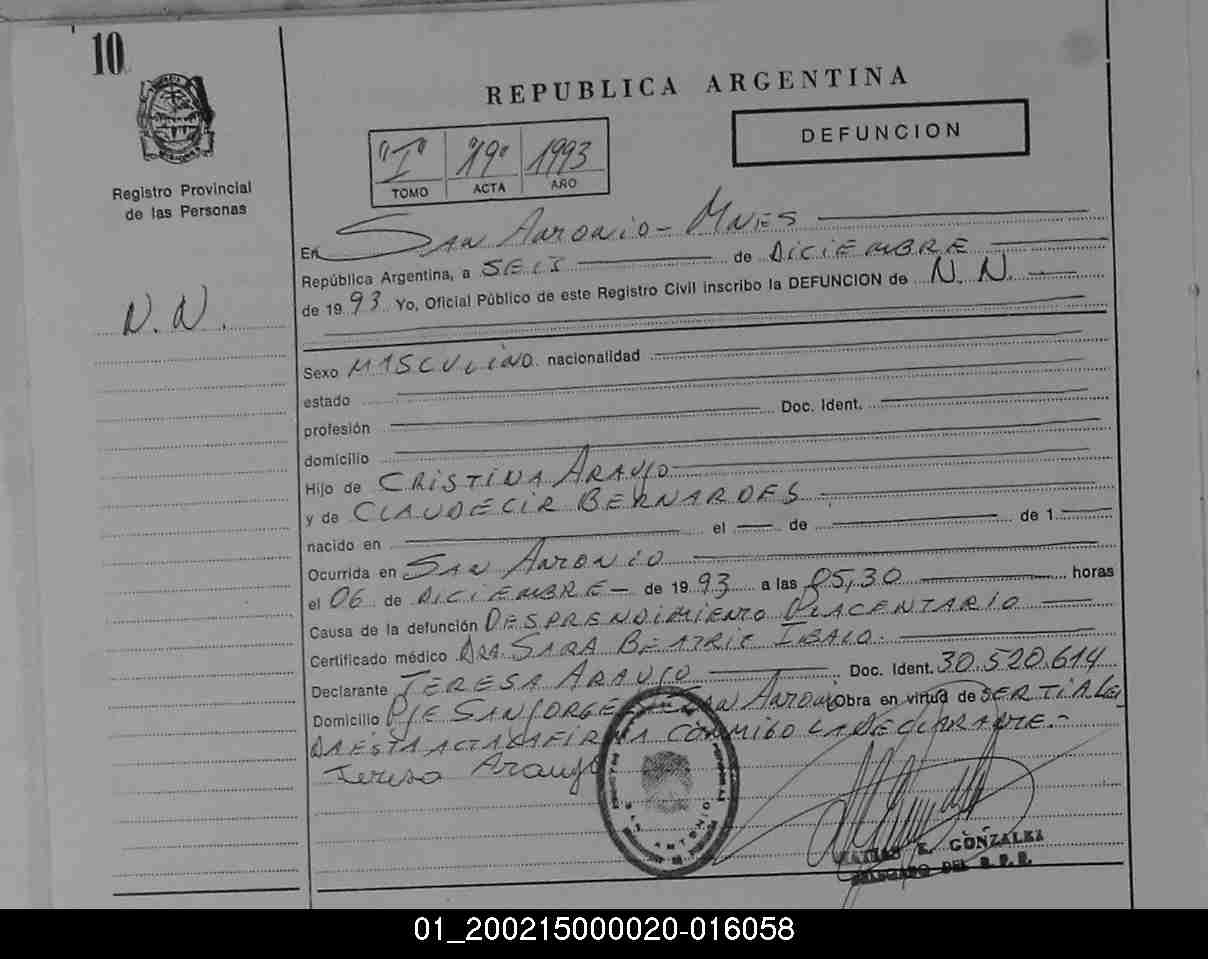 10
REPUBLICA ARGENTINA
"I" 19" 1993
TOMO ACTA AÑO
DEFUNCION
Registro Provincial
de las Personas
N.N.
En SAN ANTONIO - MNES
República Argentina, a SEIS de DICIEMBRE
de 1993 Yo, Oficial Público de este Registro Civil inscribo la DEFUNCION de N.N.
Sexo MASCULINO nacionalidad
estado
profesión Doc. Ident.
domicilio
Hijo de CRISTINA ARAUJO
y de CLAUDECIR BERNARDES
nacido en el de de 1
Ocurrida en SAN ANTONIO
el 06 de DICIEMBRE - de 1993 a las 05,30 horas
Causa de la defunción DESPRENDIMIENTO PLACENTARIO
Certificado médico DRA. SARA BEATRIZ
Declarante TERESA ARAUJO Doc. Ident. 30.520.614
Domicilio PJE SAN JORGE SAN ANTONIO Obra en virtud de
DA ESTA ACTA LA FIRMA CONMIGO LA DECLARANTE.-
Teresa Araujo
SAN ANTONIO
E. GONZALEZ
DELEGADO DEL R.P.P.
01_200215000020-016058